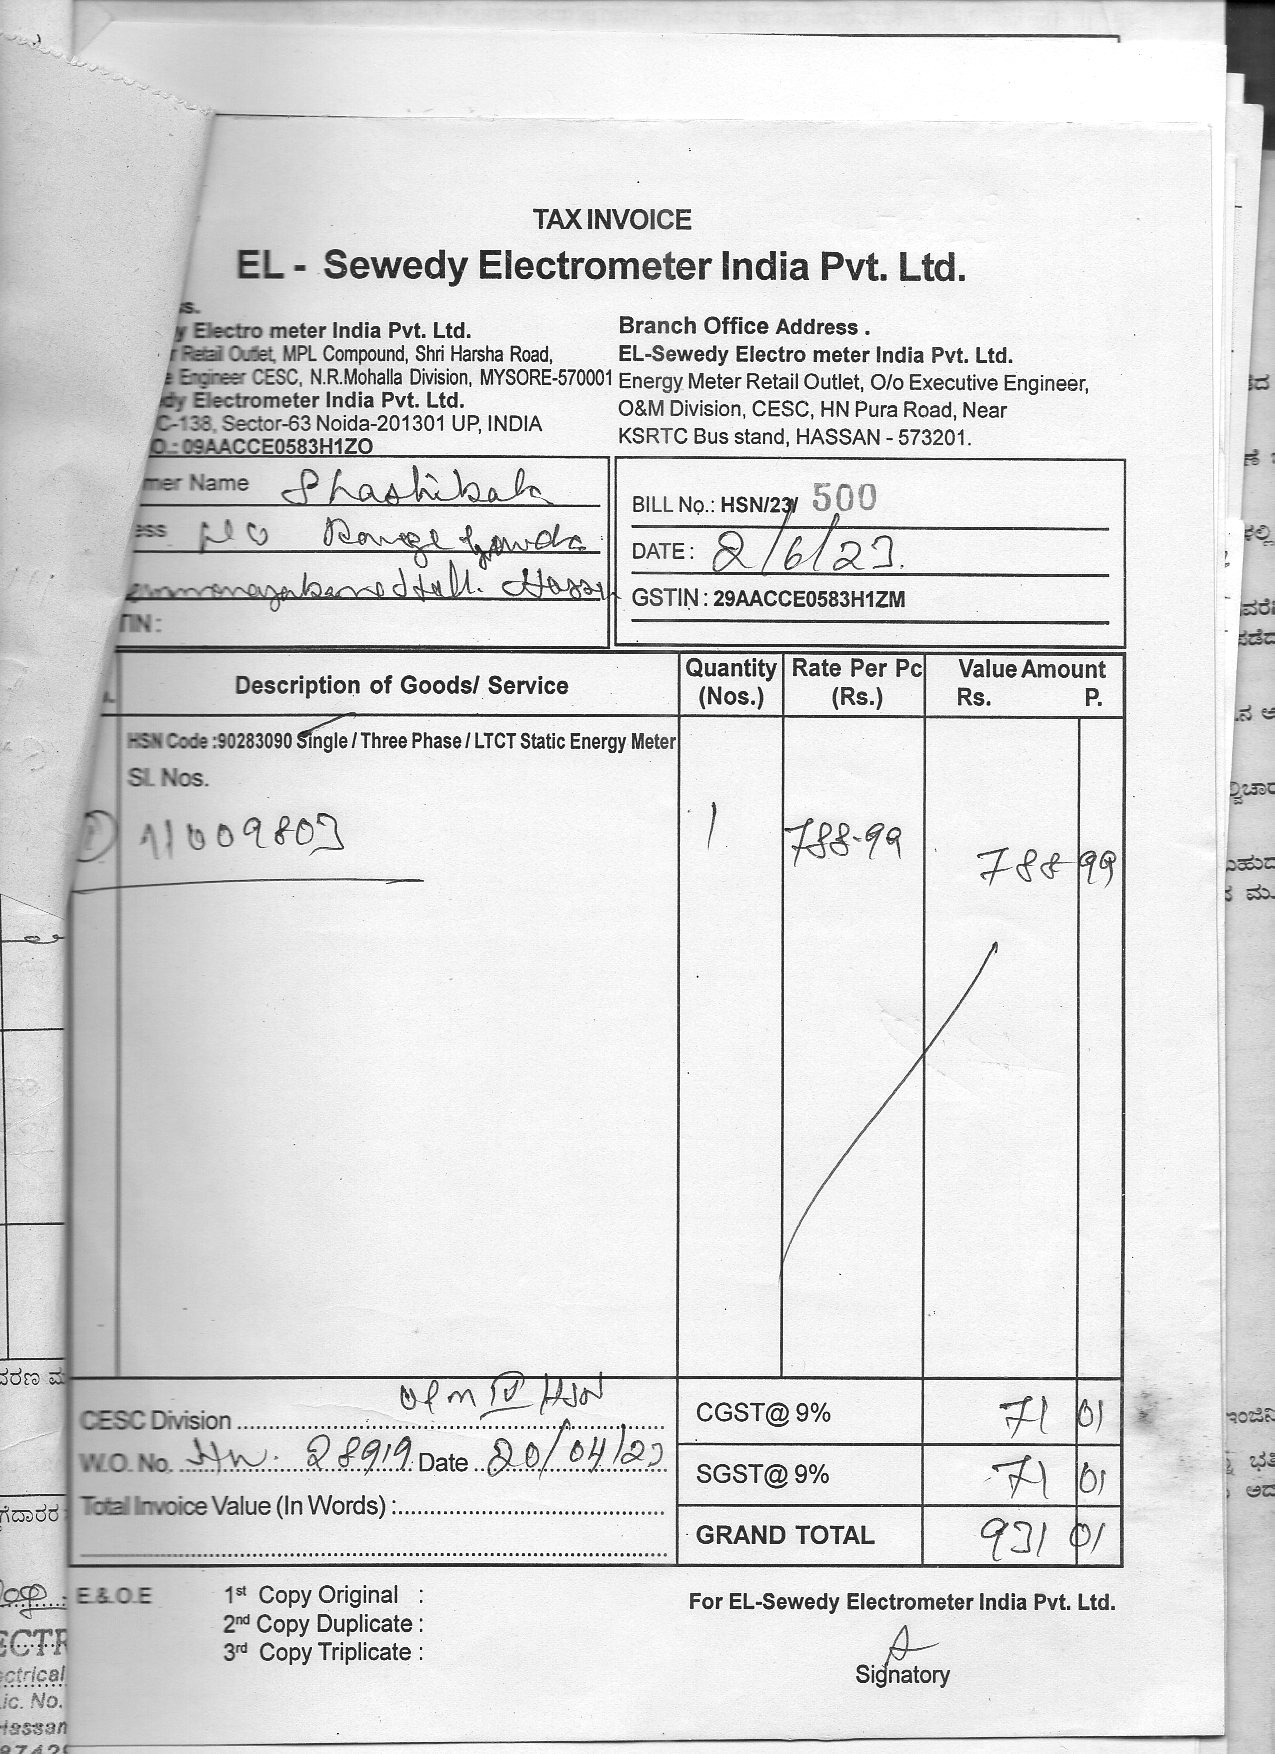 TAX INVOICE
EL - Sewedy Electrometer India Pvt. Ltd.
Electro meter India Pvt. Ltd.
Retail Outlet, MPL Compound, Shri Harsha Road,
Engineer CESC, N.R.Mohalla Division, MYSORE-570001
Electrometer India Pvt. Ltd.
C-138, Sector-63 Noida-201301 UP, INDIA
09AACCE0583H1ZO
Branch Office Address .
EL-Sewedy Electro meter India Pvt. Ltd.
Energy Meter Retail Outlet, O/o Executive Engineer,
O&M Division, CESC, HN Pura Road, Near
KSRTC Bus stand, HASSAN - 573201.
Name Shashikala
Range Gowda
BILL No.: HSN/23/ 500
DATE : 2/6/23.
GSTIN : 29AACCE0583H1ZM
Description of Goods/ Service Quantity (Nos.) Rate Per Pc (Rs.) Value Amount Rs. P.
HSN Code :90283090 Single / Three Phase / LTCT Static Energy Meter
Sl. Nos.
1) 11009803 1 788-99 788 99
CESC Division O&M IV HSN
W.O. No. 28919 Date 20/04/23
Total Invoice Value (In Words) :
CGST@ 9% 71 01
SGST@ 9% 71 01
GRAND TOTAL 931 01
E.& O.E
1st Copy Original :
2nd Copy Duplicate :
3rd Copy Triplicate :
For EL-Sewedy Electrometer India Pvt. Ltd.
Signatory